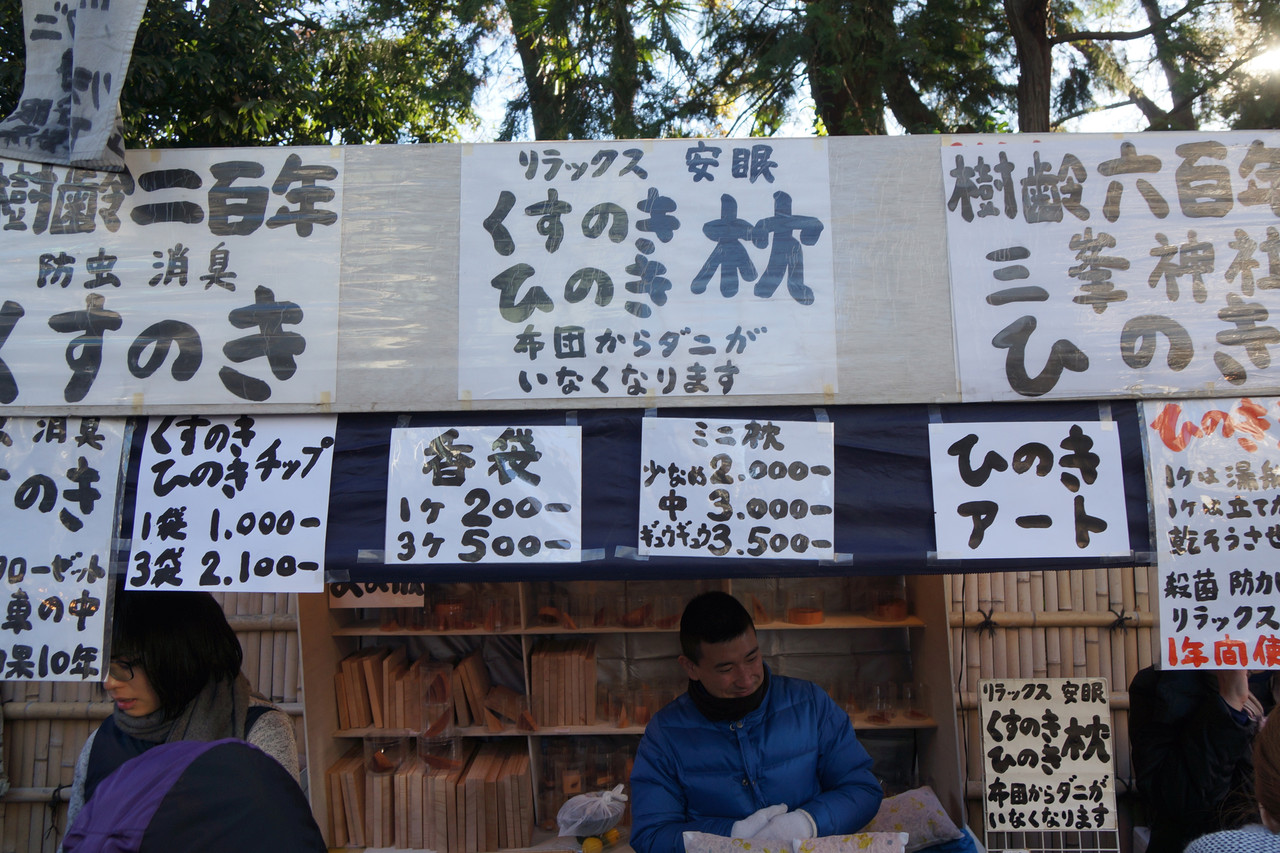 樹齢二百年
防虫 消臭
くすのき
リラックス 安眠
くすのき
ひのき
枕
布団からダニが
いなくなります
樹齢六百年
三峯神社
ひのき
消臭
すのき
ローゼット
車の中
効果10年
くすのき
ひのきチップ
1袋 1.000-
3袋 2.100-
香袋
1ヶ 200-
3ヶ 500-
ミニ枕
少なめ 2.000-
中 3.000-
ギュウギュウ 3.500-
ひのき
アート
ひのき
1ケは湯船
1ケは立て
乾そうさせ
殺菌 防か
リラックス
1年間使
リラックス 安眠
くすのき
ひのき
枕
布団からダニが
いなくなります